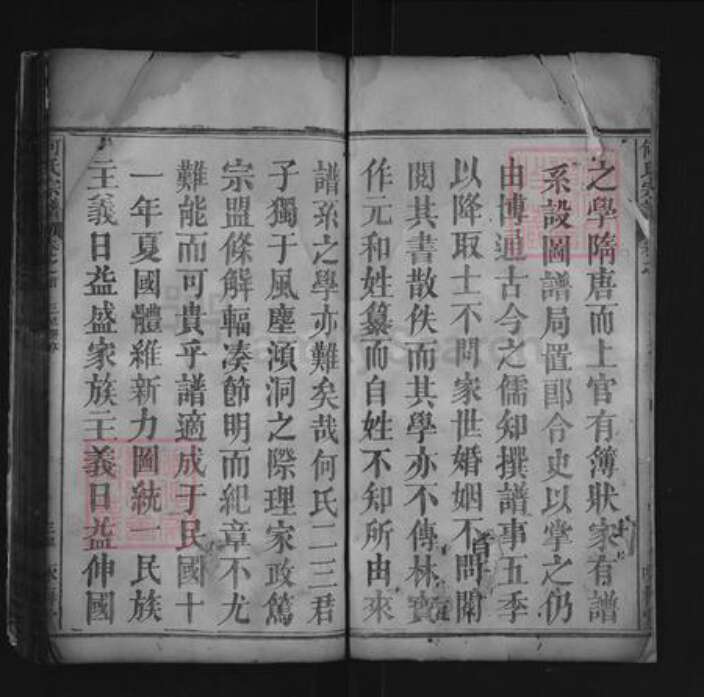 之學隋唐而上官有簿狀家有譜
系設圖譜局置郎令史以掌之仍
由博通古今之儒知撰譜事五季
以降取士不問家世婚姻不問閥
閱其書散佚而其學亦不傳林寶
作元和姓纂而自姓不知所由來
譜系之學亦難矣哉何氏二三君
子獨于風塵澒洞之際理家政篤
宗盟條解輻凑節明而紀章不尤
難能而可貴乎譜適成于民國十
一年夏國體維新力圖統一民族
主義日益盛家族主義日益伸國
何氏宗譜